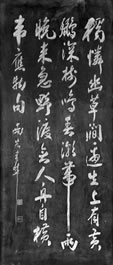 獨憐幽草澗邊生上有黃
鸝深樹鳴春潮帶雨
晚來急野渡無人舟自橫
韋應物句